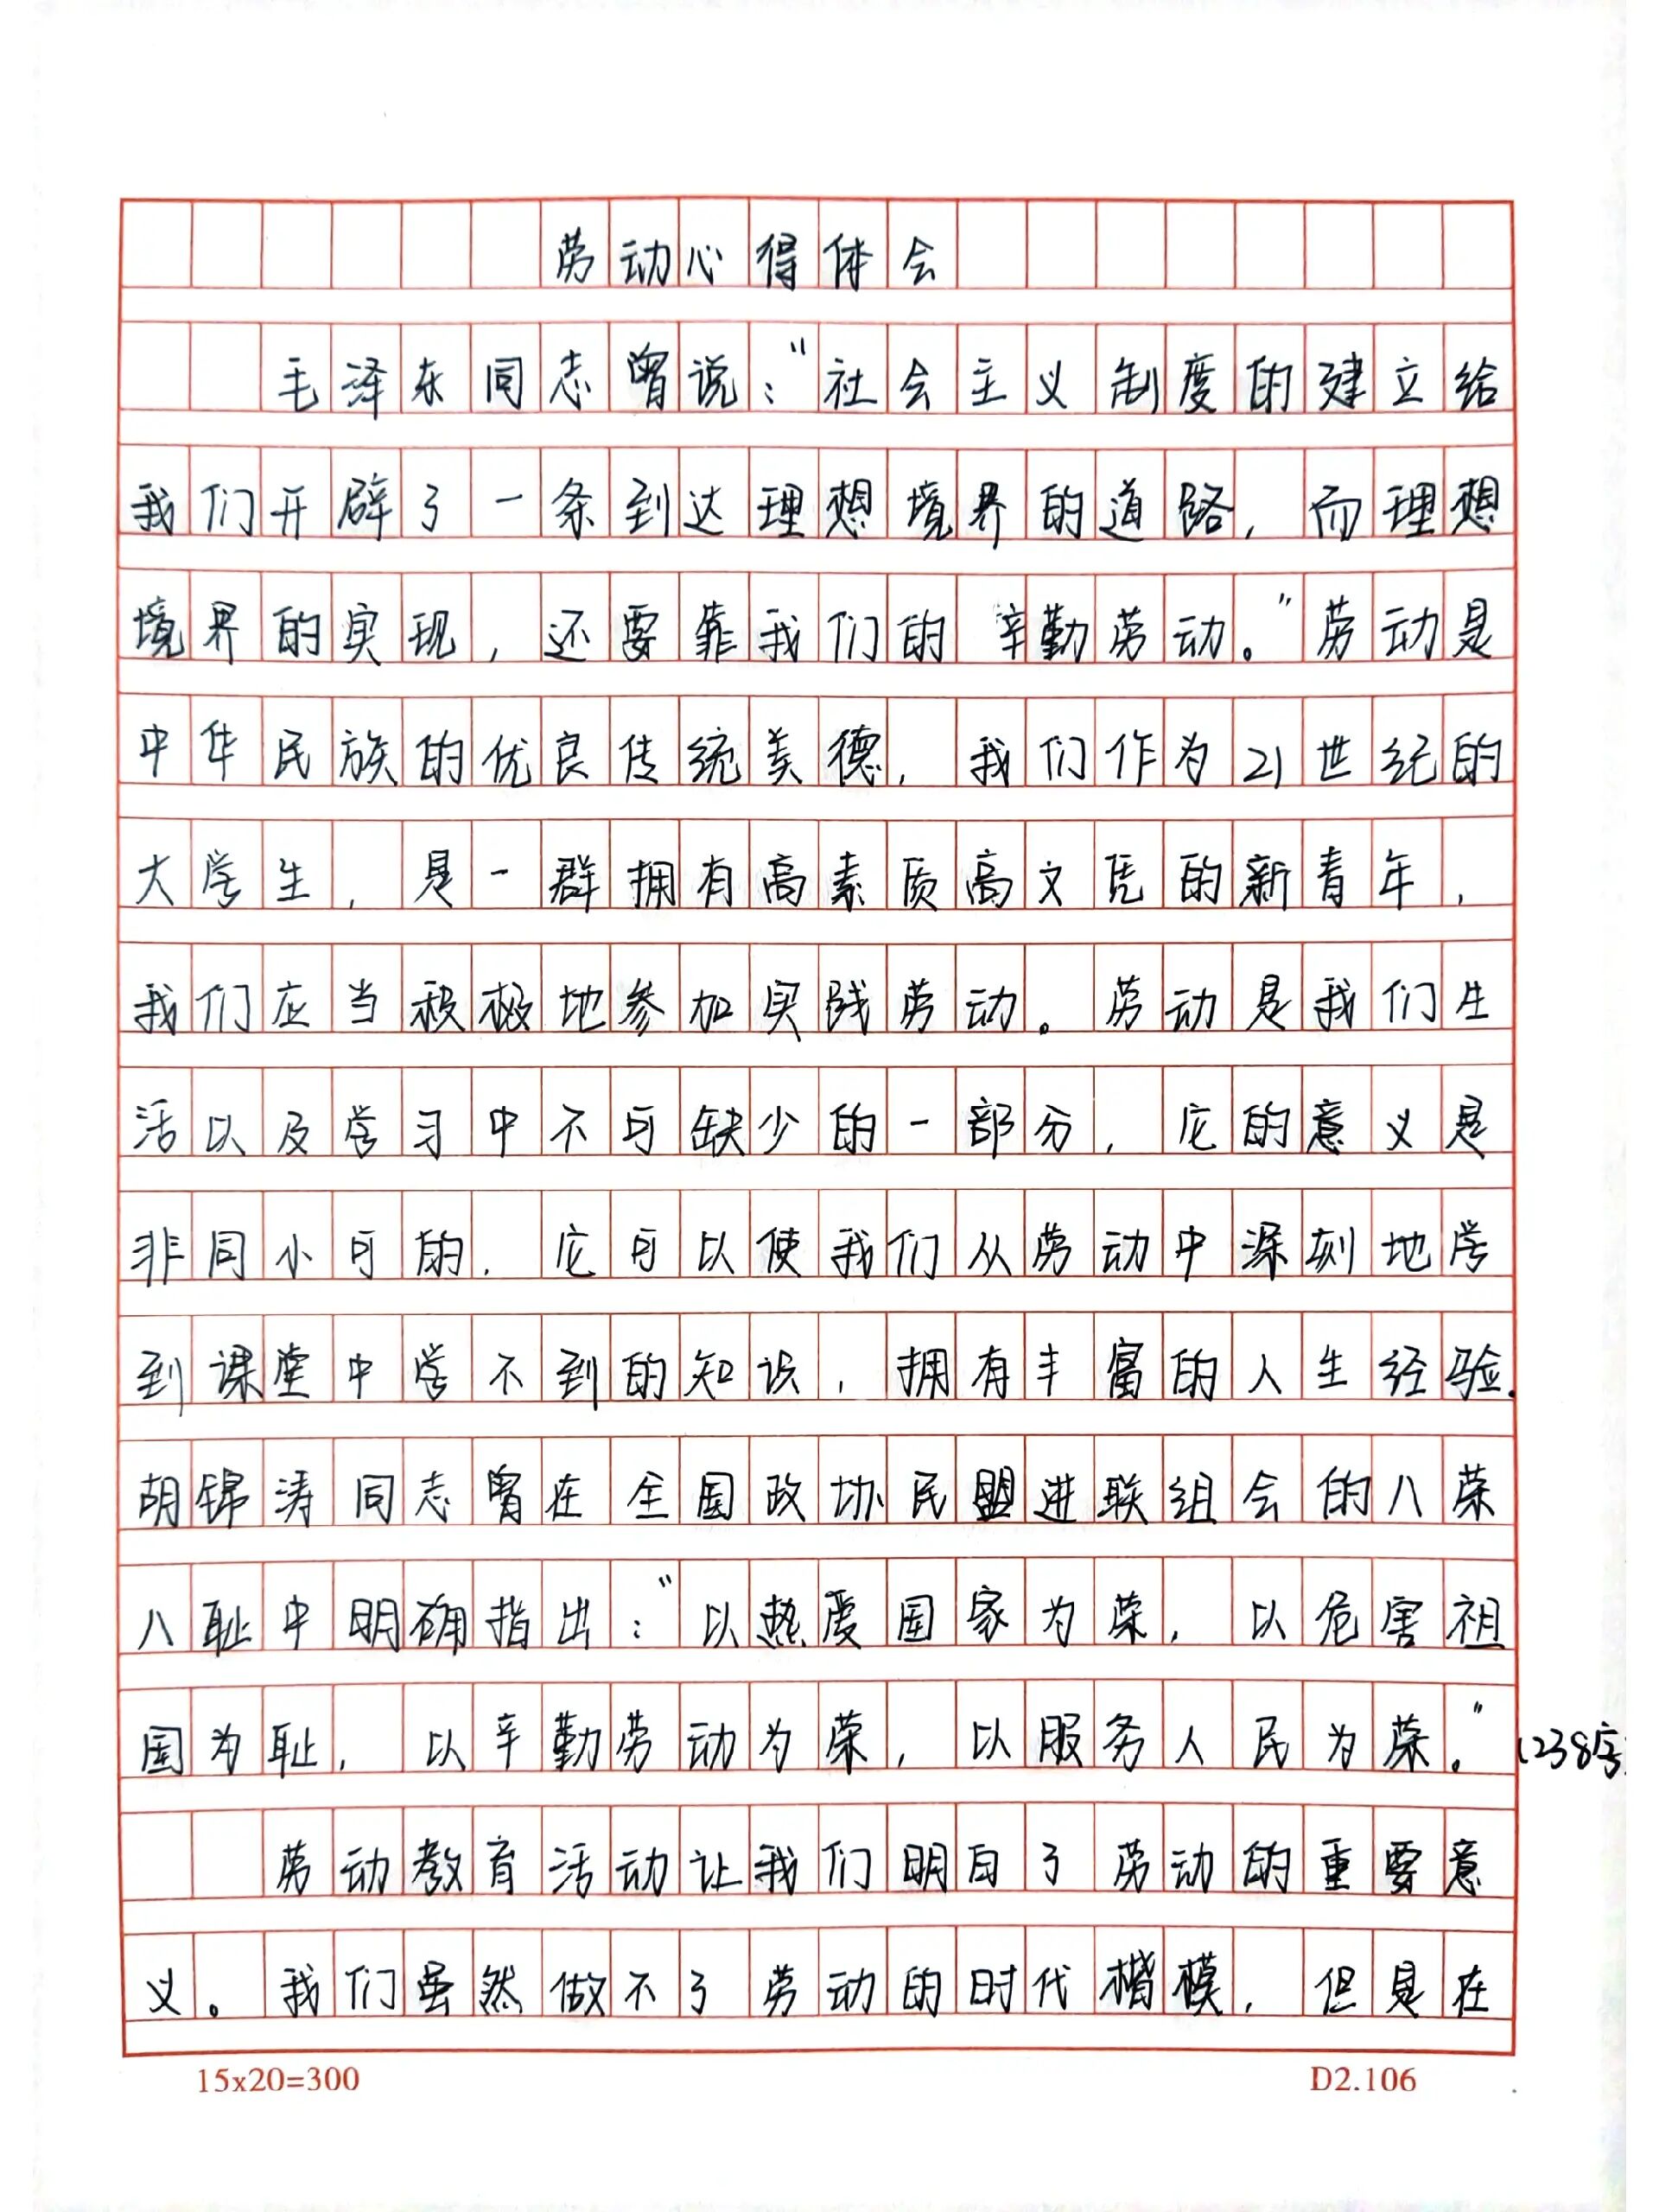 劳动心得体会
毛泽东同志曾说：“社会主义制度的建立给
我们开辟了一条到达理想境界的道路，而理想
境界的实现，还要靠我们的辛勤劳动。”劳动是
中华民族的优良传统美德，我们作为21世纪的
大学生，是一群拥有高素质高文凭的新青年，
我们应当积极地参加实践劳动。劳动是我们生
活以及学习中不可缺少的一部分，它的意义是
非同小可的，它可以使我们从劳动中深刻地学
到课堂中学不到的知识，拥有丰富的人生经验.
胡锦涛同志曾在全国政协民盟进联组会的八荣
八耻中明确指出：“以热爱国家为荣，以危害祖
国为耻，以辛勤劳动为荣，以服务人民为荣。”
(238字
劳动教育活动让我们明白了劳动的重要意
义。我们虽然做不了劳动的时代楷模，但是在
15x20=300
D2.106